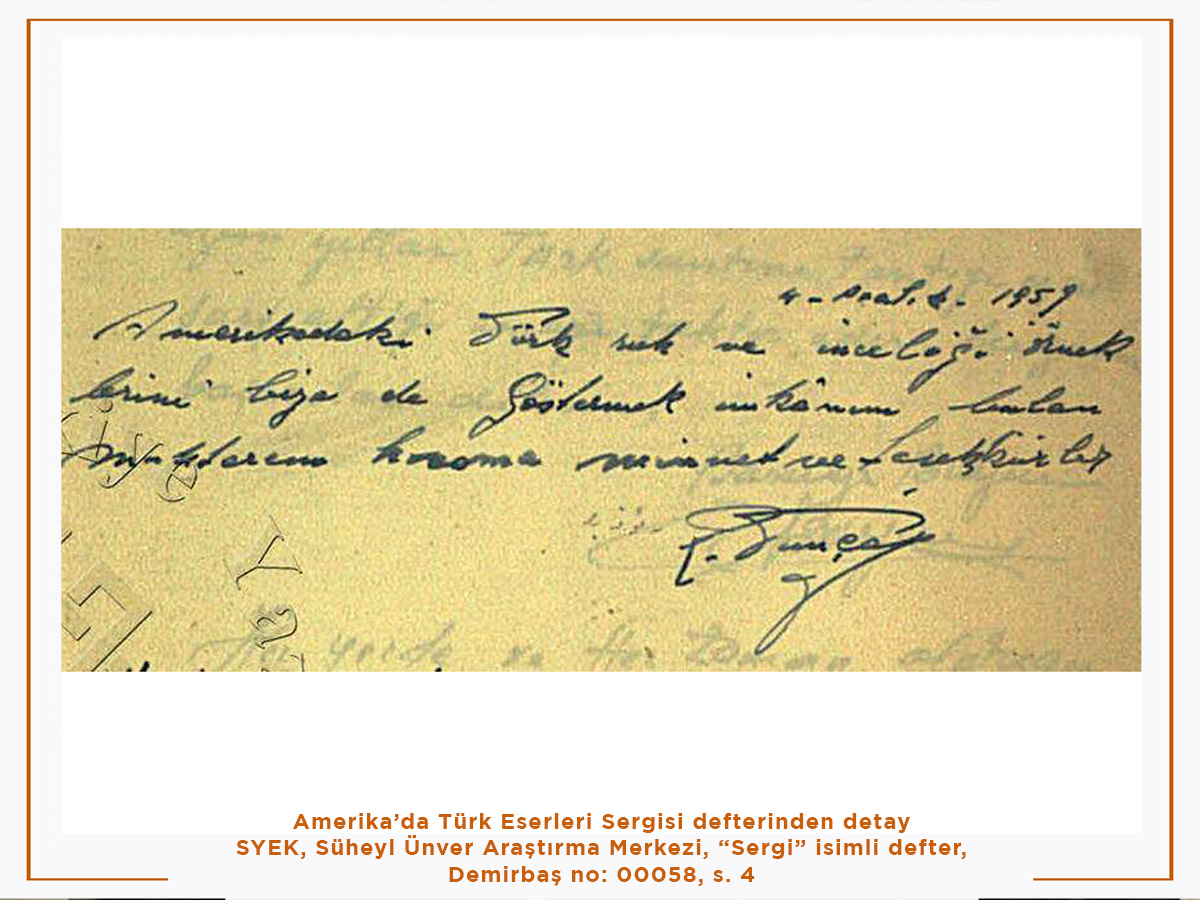 4-Aralık-1959
Amerikadaki Türk ve inceliği örnek
lerini bize de göstermek imkânını bulan
muhterem hocama minnet ve teşekkürler
Amerika’da Türk Eserleri Sergisi defterinden detay
SYEK, Süheyl Ünver Araştırma Merkezi, “Sergi” isimli defter,
Demirbaş no: 00058, s. 4